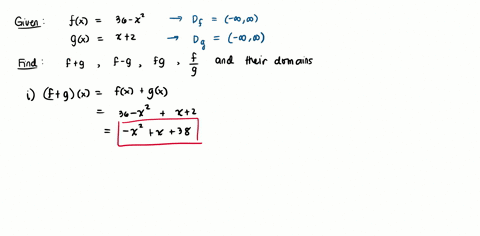 Given: f(x) = 36-x² → D_f = (-∞,∞)
g(x) = x+2 → D_g = (-∞,∞)
Find: f+g , f-g , fg , f/g and their domains
i) (f+g)(x) = f(x) + g(x)
= 36-x² + x+2
= -x² + x + 38